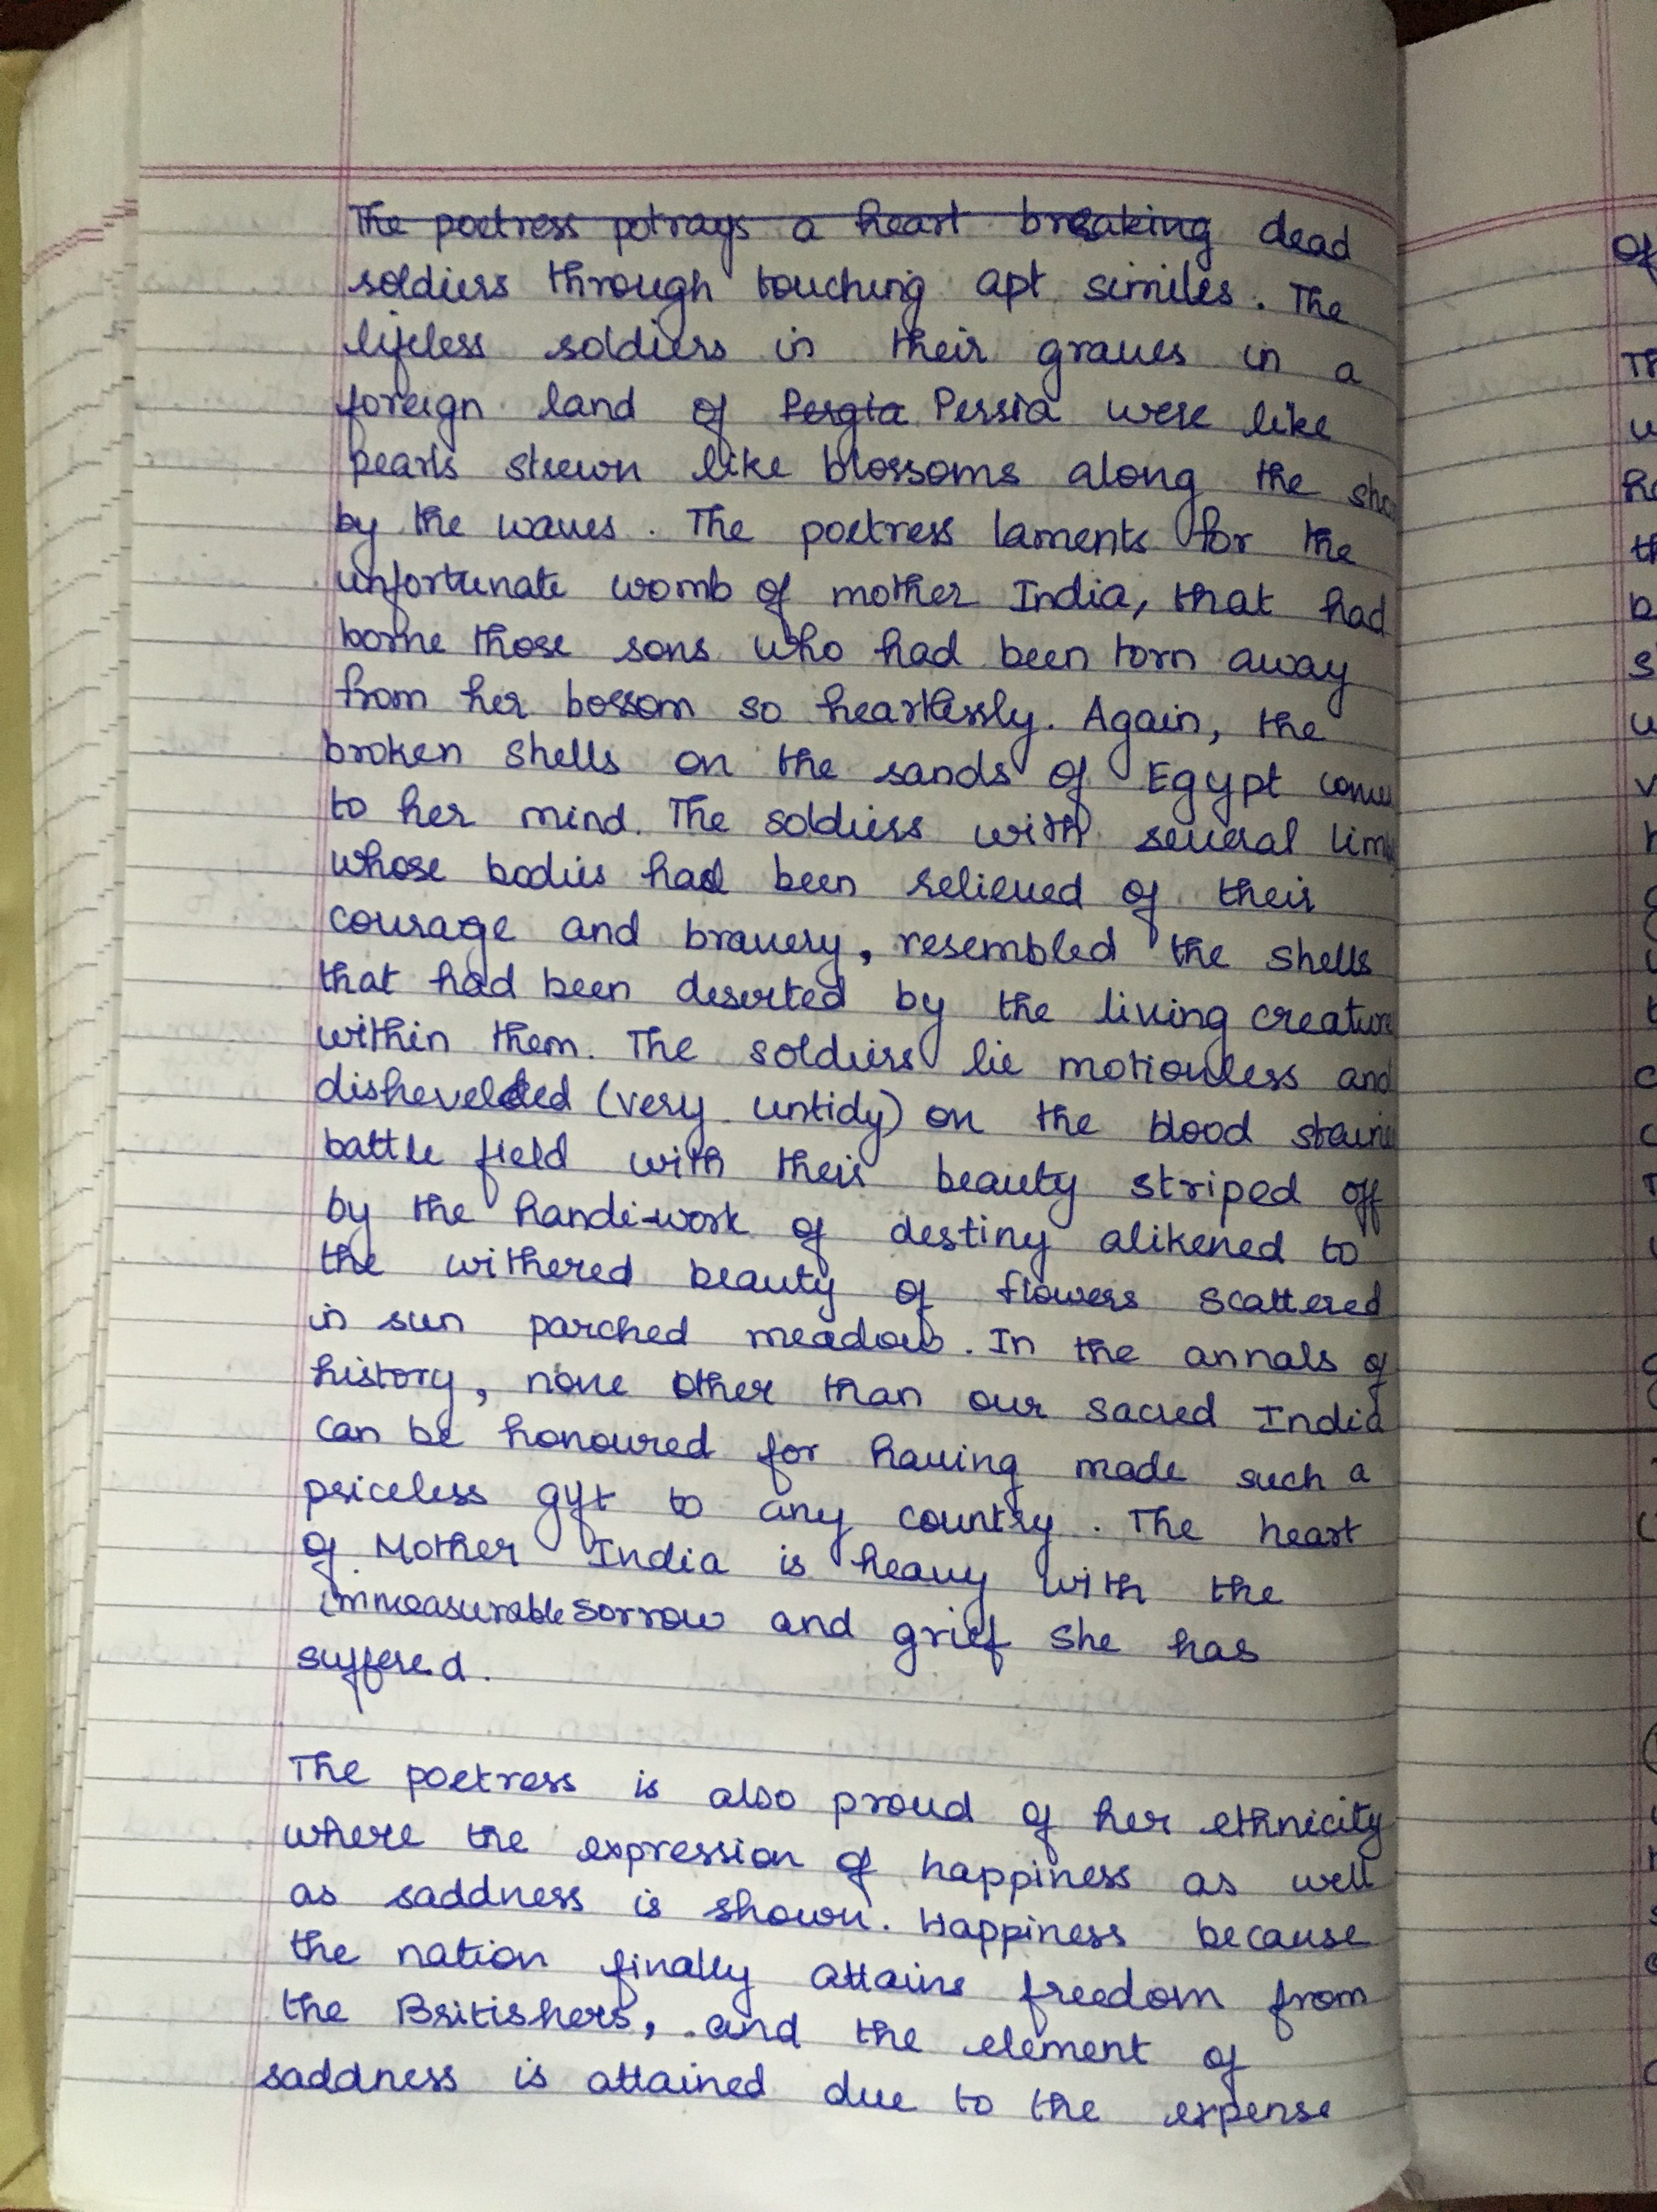 The poetress potrays a heart breaking dead
soldiers through touching apt similes. The
lifeless soldiers in their graves in a
foreign land of Pergia Persia were like
pearls strewn like blossoms along the sho
by the waves. The poetress laments for the
unfortunate womb of mother India, that had
borne those sons who had been torn away
from her bossom so heartlessly. Again, the
broken shells on the sands of Egypt comes
to her mind. The soldiers with several limb
whose bodies had been relieved of their
courage and bravery, resembled the shells
that had been deserted by the living creature
within them. The soldiers lie motionless and
disheveled (very untidy) on the blood staine
battle field with their beauty striped off
by the handi-work of destiny alikened to
the withered beauty of flowers scattered
in sun parched meadow. In the annals of
history, none other than our sacred India
can be honoured for having made such a
priceless gift to any country. The heart
of Mother India is heavy with the
immeasurable sorrow and grief she has
suffered.
The poetress is also proud of her ethnicity
where the expression of happiness as well
as saddness is shown. Happiness because
the nation finally attains freedom from
the Britishers, and the element of
saddness is attained due to the expense
of